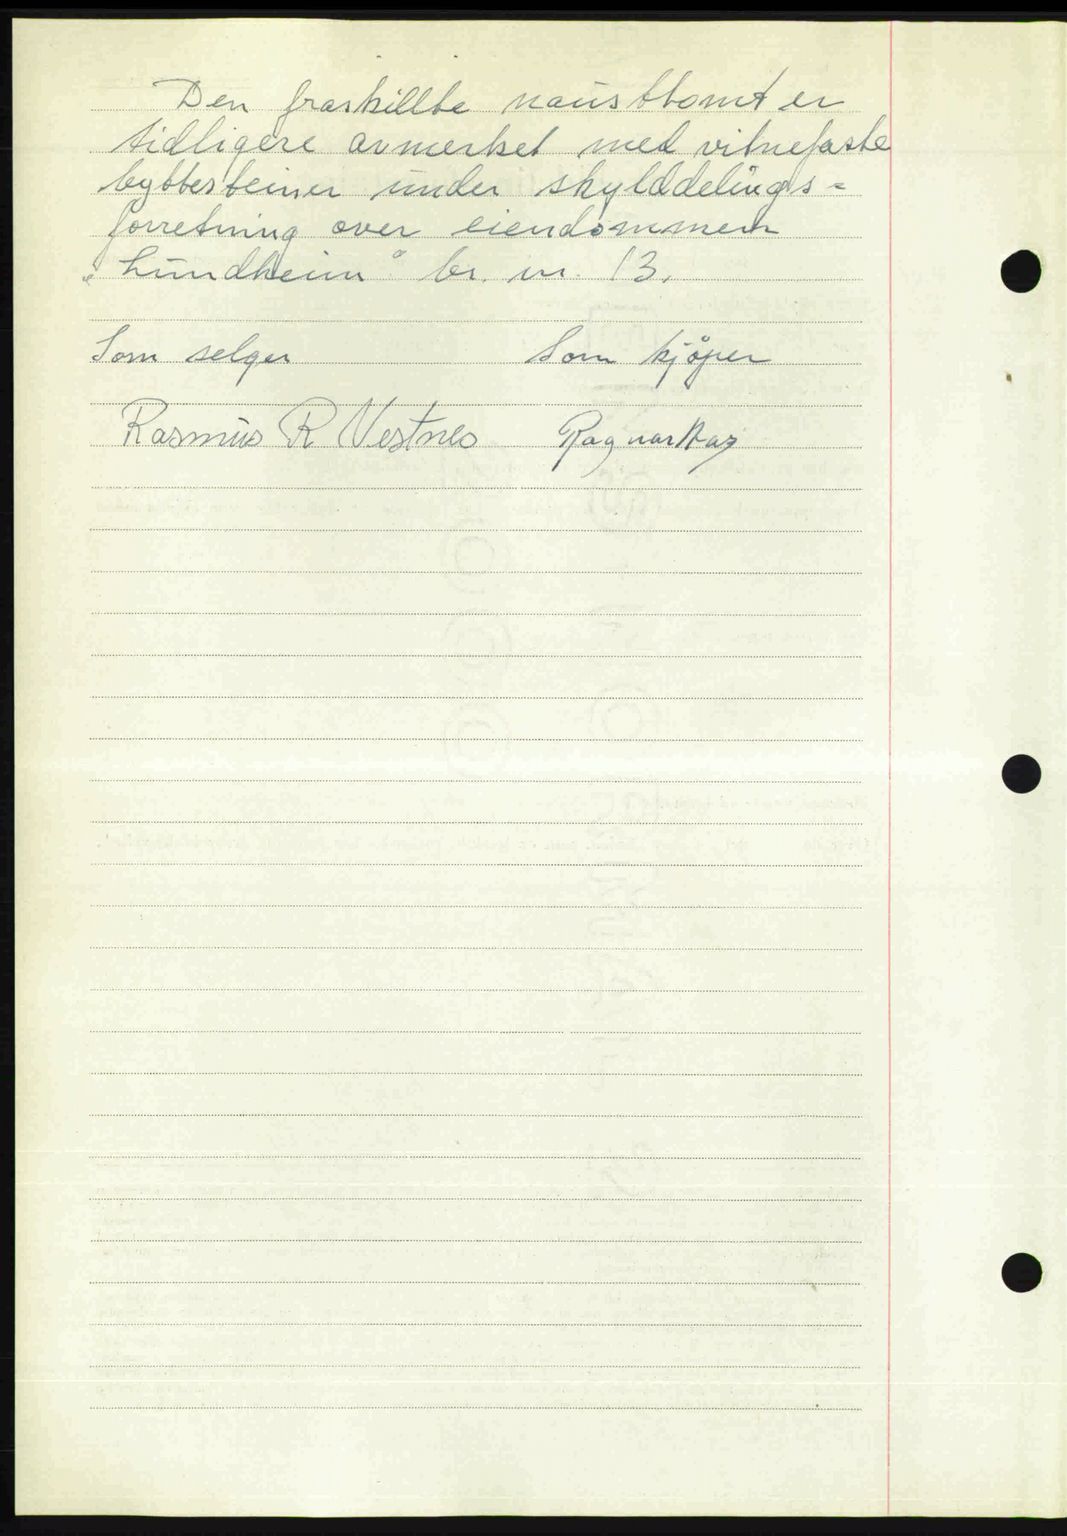 Den fraskillte nausttomt er
tidligere avmerket med vitnefaste
byttesteiner under skylddelings=
forretning over eiendommen
„Lundheim“ br. nr. 13.
Som selger Som kjøper
Rasmus R Vestnes Ragnar